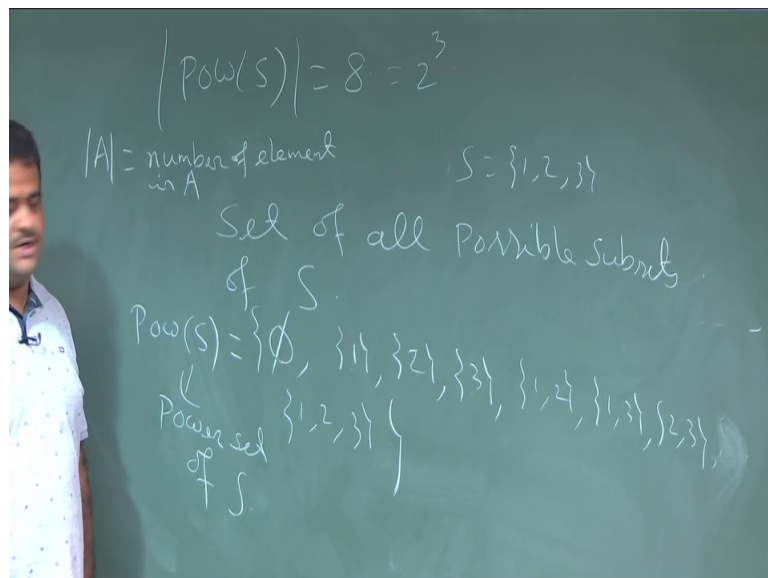 |Pow(S)| = 8 = 2³
|A| = number of element
in A
S = {1, 2, 3}
Set of all Possible Subsets
of S.
Pow(S) = {∅, {1}, {2}, {3}, {1, 2}, {1, 3}, {2, 3},
{1, 2, 3}}
Power set
of S.